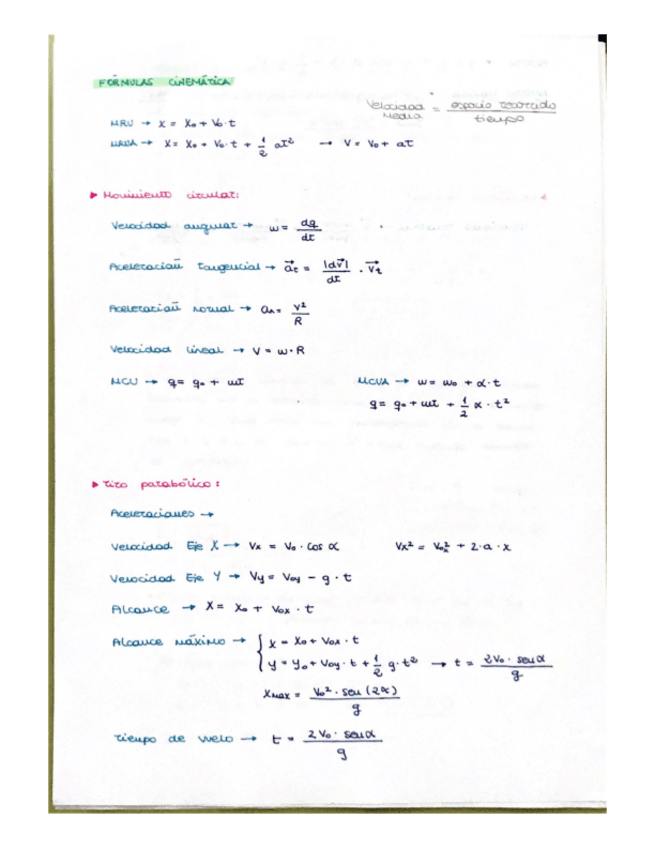 FÓRMULAS CINEMÁTICA
Velocidad Media = espacio recorrido / tiempo
MRU → x = x₀ + v₀·t
MRUA → x = x₀ + v₀·t + 1/2 at² → v = v₀ + at
▶ Movimiento circular:
Velocidad angular → ω = dφ/dt
Aceleración tangencial → a⃗t = |dv⃗|/dt · v⃗t
Aceleración normal → an = v²/R
Velocidad lineal → v = ω·R
MCU → φ = φ₀ + ωt
MCUA → ω = ω₀ + α·t
φ = φ₀ + ωt + 1/2 α·t²
▶ Tiro parabólico:
Aceleraciones →
Velocidad Eje X → Vx = V₀·cos α   Vx² = V₀x² + 2·a·x
Velocidad Eje Y → Vy = V₀y − g·t
Alcance → x = x₀ + V₀x·t
Alcance máximo → { x = x₀ + V₀x·t
y = y₀ + V₀y·t + 1/2 g·t² → t = 2V₀·senα / g
xmax = V₀²·sen(2α) / g
Tiempo de vuelo → t = 2V₀·senα / g